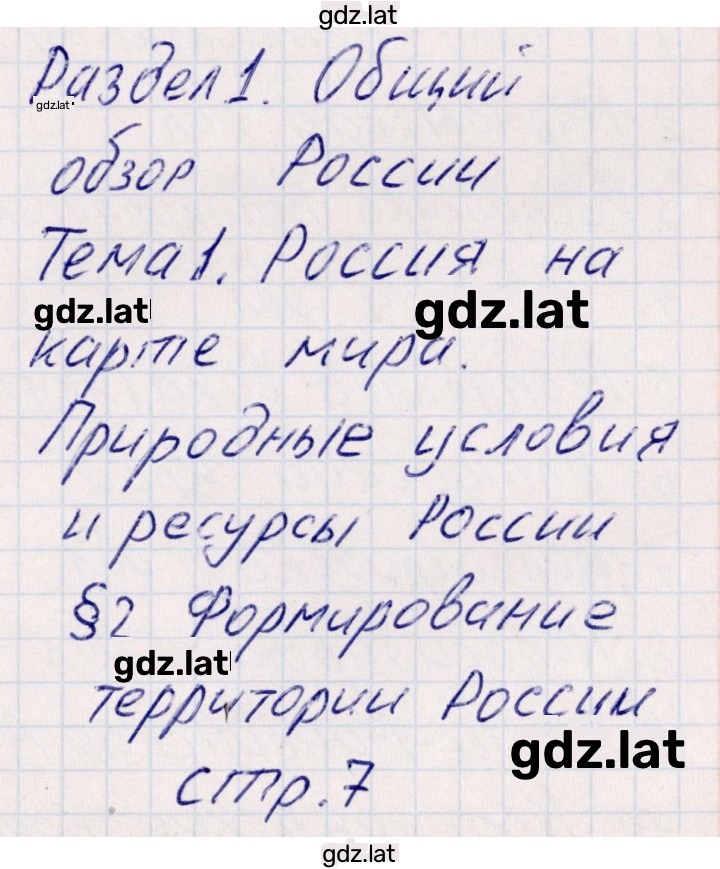 gdz.lat
Раздел 1. Общий
gdz.lat
обзор России
Тема 1. Россия на
gdz.lat gdz.lat
карте мира.
Природные условия
и ресурсы России
§2 Формирование
gdz.lat
территории России
gdz.lat
стр. 7
gdz.lat